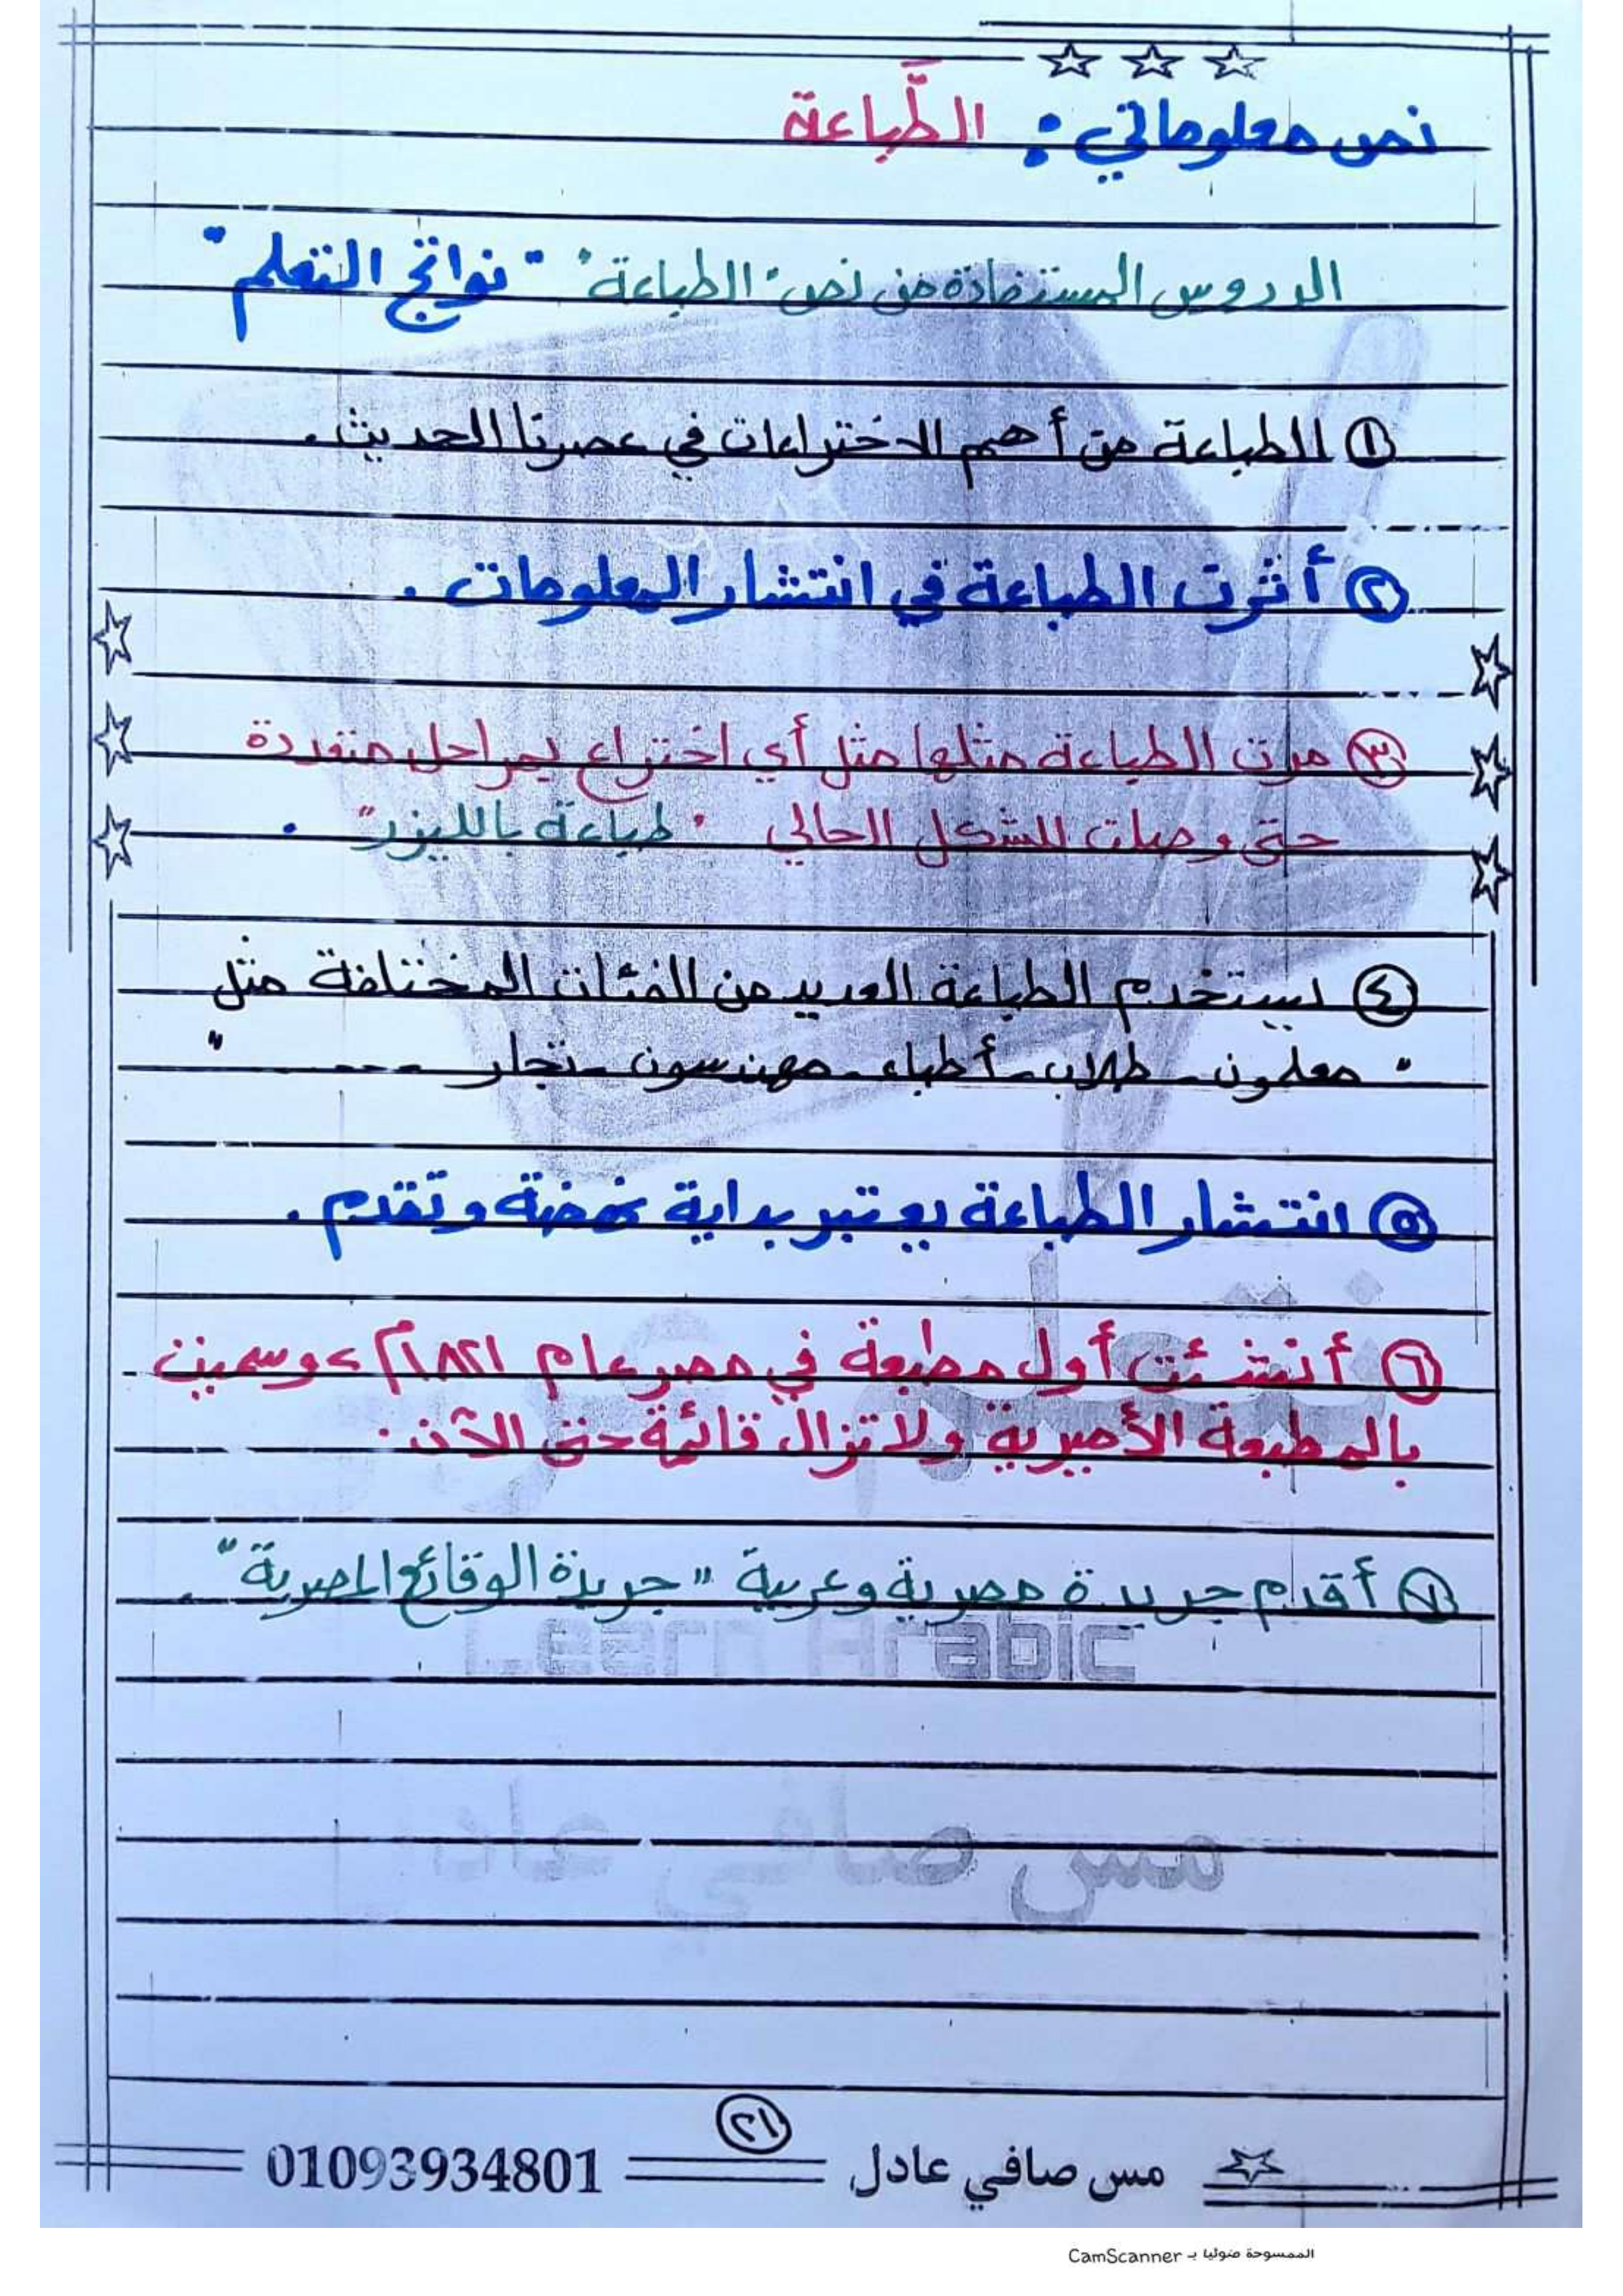 نص معلوماتي: الطِّباعة
الدروس المستفادة من نص "الطباعة" "نواتج التعلم"
١ الطباعة من أهم الاختراعات في عصرنا الحديث.
٢ أثرت الطباعة في انتشار المعلومات.
٣ مرت الطباعة مثلها مثل أي اختراع بمراحل متعددة
حتى وصلت للشكل الحالي "طباعة بالليزر".
٤ يستخدم الطباعة العديد من الفئات المختلفة مثل
"معلمون - طلاب - أطباء - مهندسون - تجار ----"
٥ انتشار الطباعة يعتبر بداية نهضة وتقدم.
٦ أنشئت أول مطبعة في مصر عام ١٨٢١م، وسميت
بالمطبعة الأميرية ولا تزال قائمة حتى الآن.
٧ أقدم جريدة مصرية وعربية "جريدة الوقائع المصرية".
نتعلم عربي
Learn Arabic
مس صافي عادل
٢١
مس صافي عادل 01093934801
الممسوحة ضوئيا بـ CamScanner